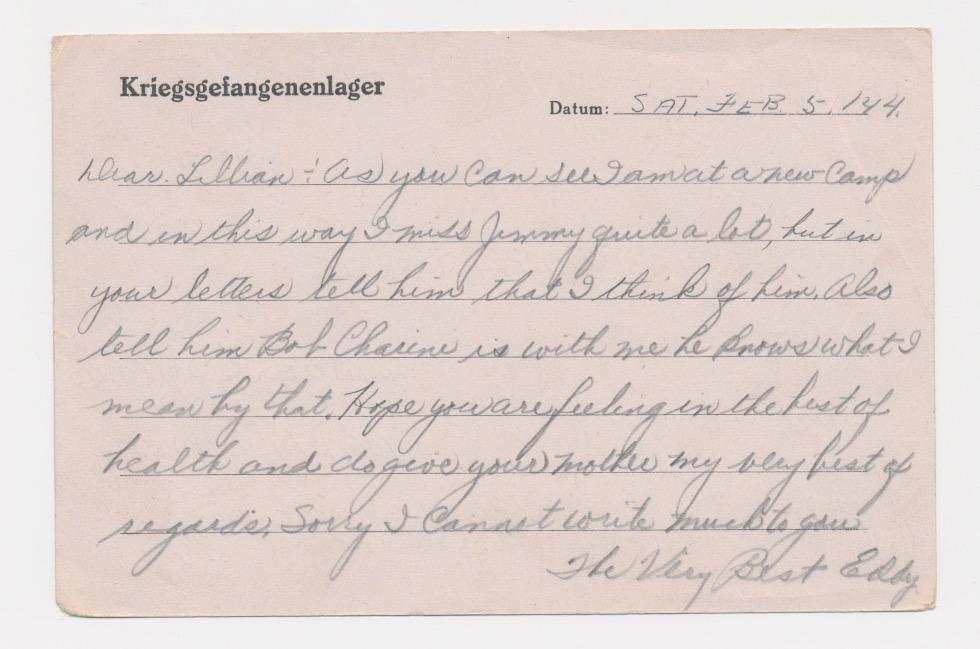 Kriegsgefangenenlager
Datum: SAT, FEB 5, 144.
Dear Lillian ÷ As you can see I am at a new camp
and in this way I miss Jimmy quite a lot, but in
your letters tell him that I think of him. Also
tell him Bob is with me he knows what I
mean by that. Hope you are feeling in the best of
health and do give your mother my very best of
regards. Sorry I cannot write much to you
The Very Best